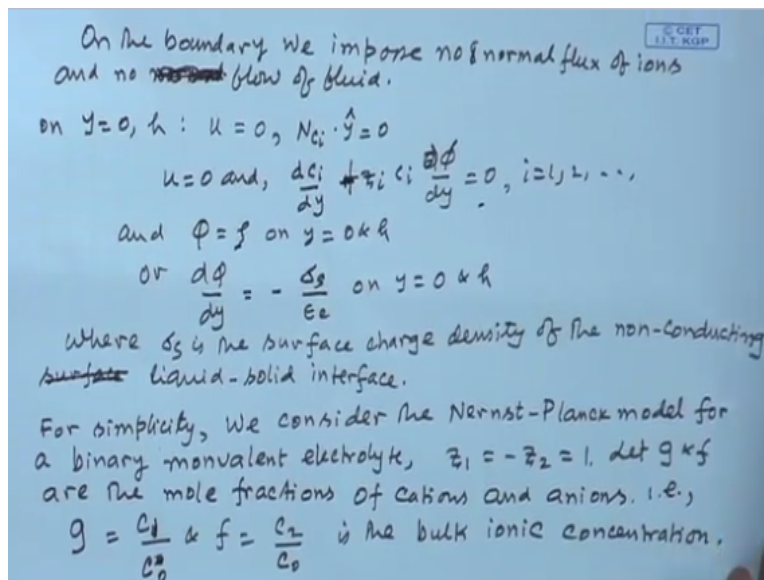 On the boundary we impose no normal flux of ions
© CET
I.I.T. KGP
and no flow of fluid.
on y=0, h : u = 0, N_{ci} · ŷ = 0
u=0 and, dc_i/dy + z_i c_i dφ/dy = 0, i=1, 2, ...,
and φ = ζ on y = 0 & h
or dφ/dy = - σ_s/ε_e on y = 0 & h
where σ_s is the surface charge density of the non-conducting
liquid-solid interface.
For simplicity, we consider the Nernst-Planck model for
a binary monvalent electrolyte, z_1 = -z_2 = 1. Let g & f
are the mole fractions of cations and anions. i.e.,
g = c_1/c_0 & f = c_2/c_0 is the bulk ionic concentration.